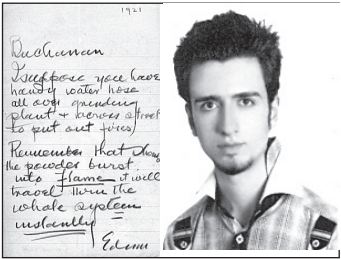 1921
Buchanan
I suppose you have
handy water hose
all over grinding
plant + across street
to put out fires
Remember that when
the powder burst
into flame it will
travel thru the
whole system
instantly